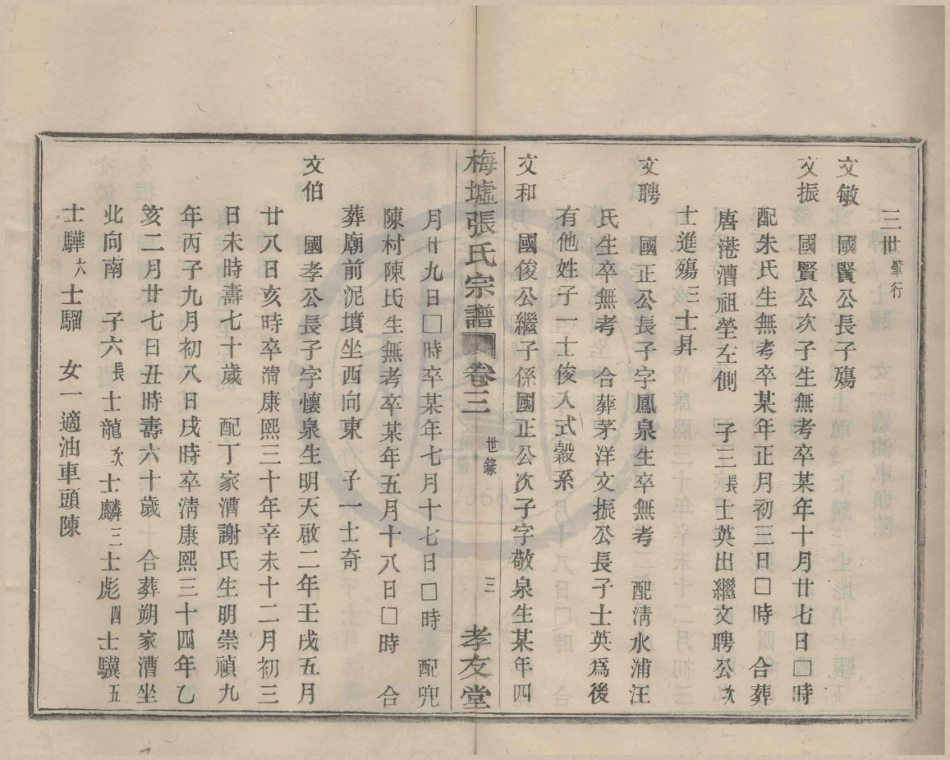 三世肇行
文敏 國賢公長子殤
文振 國賢公次子生無考卒某年十月廿七日□時
配朱氏生無考卒某年正月初三日□時 合葬
唐港漕祖塋左側 子三長士英出繼文聘公次
士進殤三士昇
文聘 國正公長子字鳳泉生卒無考 配清水浦汪
氏生卒無考 合葬茅洋文振公長子士英爲後
有他姓子一士俊入式穀系
文和 國俊公繼子係國正公次子字敬泉生某年四
梅墟張氏宗譜 卷三 世錄 三 孝友堂
月廿九日□時卒某年七月十七日□時 配兜
陳村陳氏生無考卒某年五月十八日□時 合
葬廟前泥墳坐西向東 子一士奇
文伯 國孝公長子字懷泉生明天啟二年壬戌五月
廿八日亥時卒清康熙三十年辛未十二月初三
日未時壽七十歲 配丁家漕謝氏生明崇禎九
年丙子九月初八日戌時卒淸康熙三十四年乙
亥二月廿七日丑時壽六十歲 合葬朔家漕坐
北向南 子六長士龍次士麟三士彪四士驥五
士驊六士騮 女一適油車頭陳